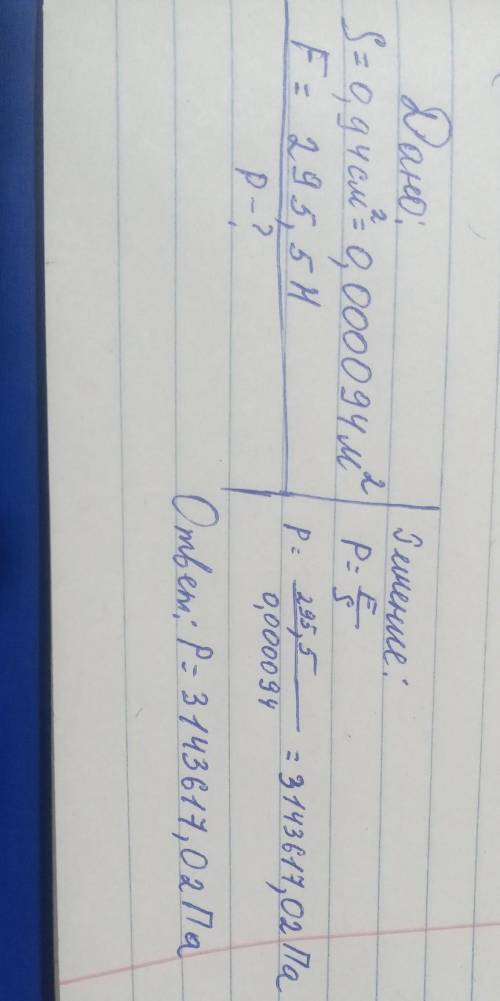 Дано:
S = 0,94 см² = 0,000094 м²
F = 295,5 Н
P - ?
Решение:
P = F/S
P = 295,5/0,000094 = 3143617,02 Па
Ответ: P = 3143617,02 Па